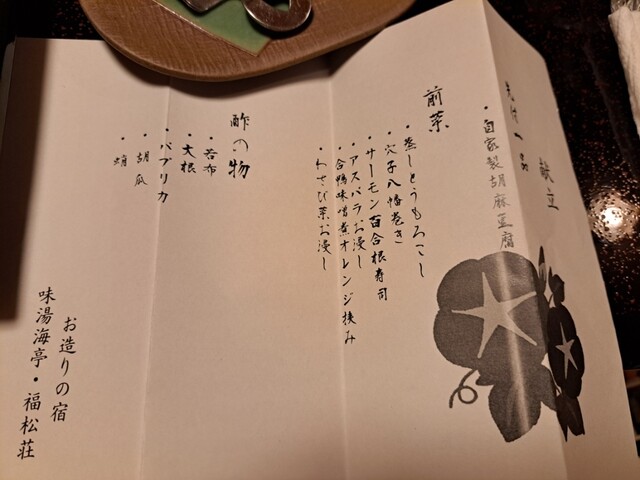 献立
先付一品
・自家製胡麻豆腐
前菜
・蒸しとうもろこし
・穴子八幡巻き
・サーモン百合根寿司
・アスパラお浸し
・合鴨味噌煮オレンジ挟み
・わさび菜お浸し
酢の物
・若布
・大根
・パプリカ
・胡瓜
・蛸
お造りの宿
味湯海亭・福松荘